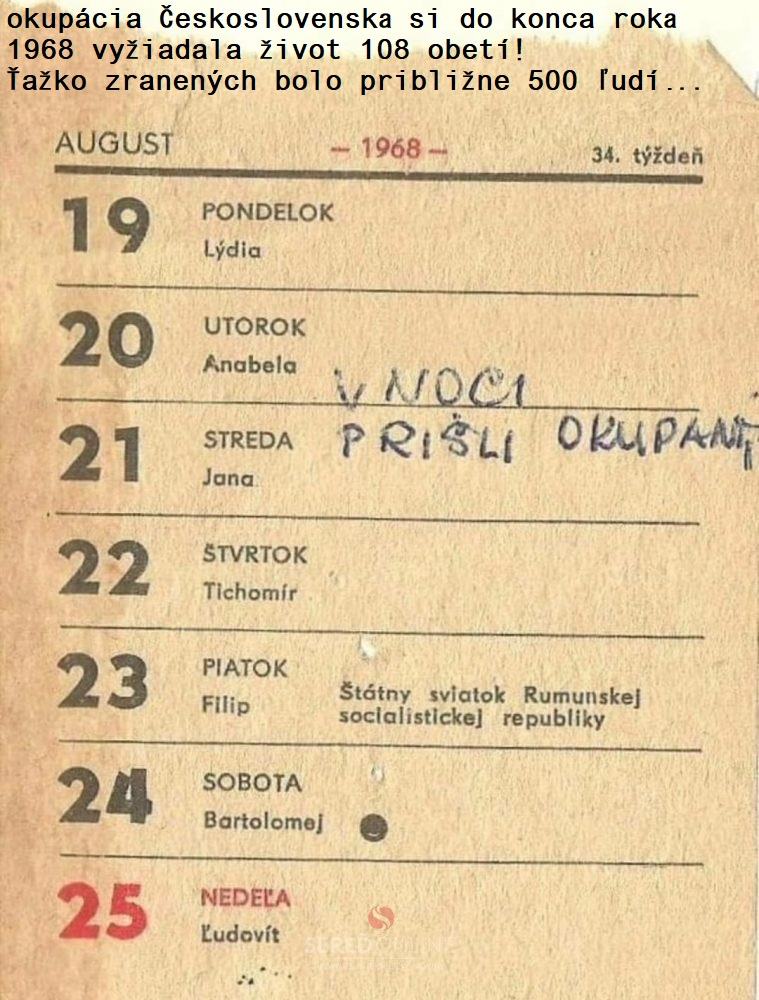 okupácia Československa si do konca roka
1968 vyžiadala život 108 obetí!
Ťažko zranených bolo približne 500 ľudí...
AUGUST – 1968 – 34. týždeň
19 PONDELOK
Lýdia
20 UTOROK
Anabela
V NOCI
21 STREDA PRIŠLI OKUPANTI
Jana
22 ŠTVRTOK
Tichomír
23 PIATOK
Filip Štátny sviatok Rumunskej
socialistickej republiky
24 SOBOTA
Bartolomej
25 NEDEĽA
Ľudovít